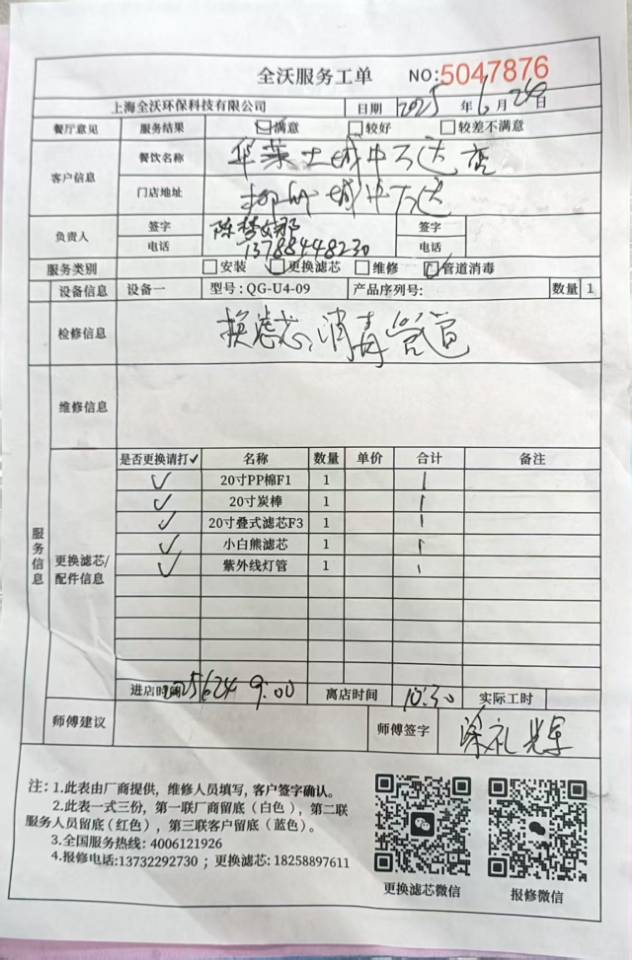 全沃服务工单 NO:5047876
上海全沃环保科技有限公司 日期 2025 年 6 月 24 日
餐厅意见 服务结果 ☑满意 □较好 □较差不满意
客户信息 餐饮名称 华莱士城中万达店
门店地址 柳州城中万达
负责人 签字 陈梦 签字
电话 13788448230 电话
服务类别 □安装 ☑更换滤芯 □维修 ☑管道消毒
设备信息 设备一 型号：QG-U4-09 产品序列号： 数量 1
检修信息 换滤芯、消毒管道
维修信息
服务信息
更换滤芯/配件信息
是否更换请打✓ 名称 数量 单价 合计 备注
✓ 20寸PP棉F1 1 1
✓ 20寸炭棒 1 1
✓ 20寸叠式滤芯F3 1 1
✓ 小白熊滤芯 1 1
✓ 紫外线灯管 1 1
进店时间 2025 6 24 9:00 离店时间 10:30 实际工时
师傅建议 师傅签字
注：1.此表由厂商提供，维修人员填写，客户签字确认。
2.此表一式三份，第一联厂商留底（白色），第二联
服务人员留底（红色），第三联客户留底（蓝色）。
3.全国服务热线：4006121926
4.报修电话:13732292730；更换滤芯: 18258897611
更换滤芯微信 报修微信